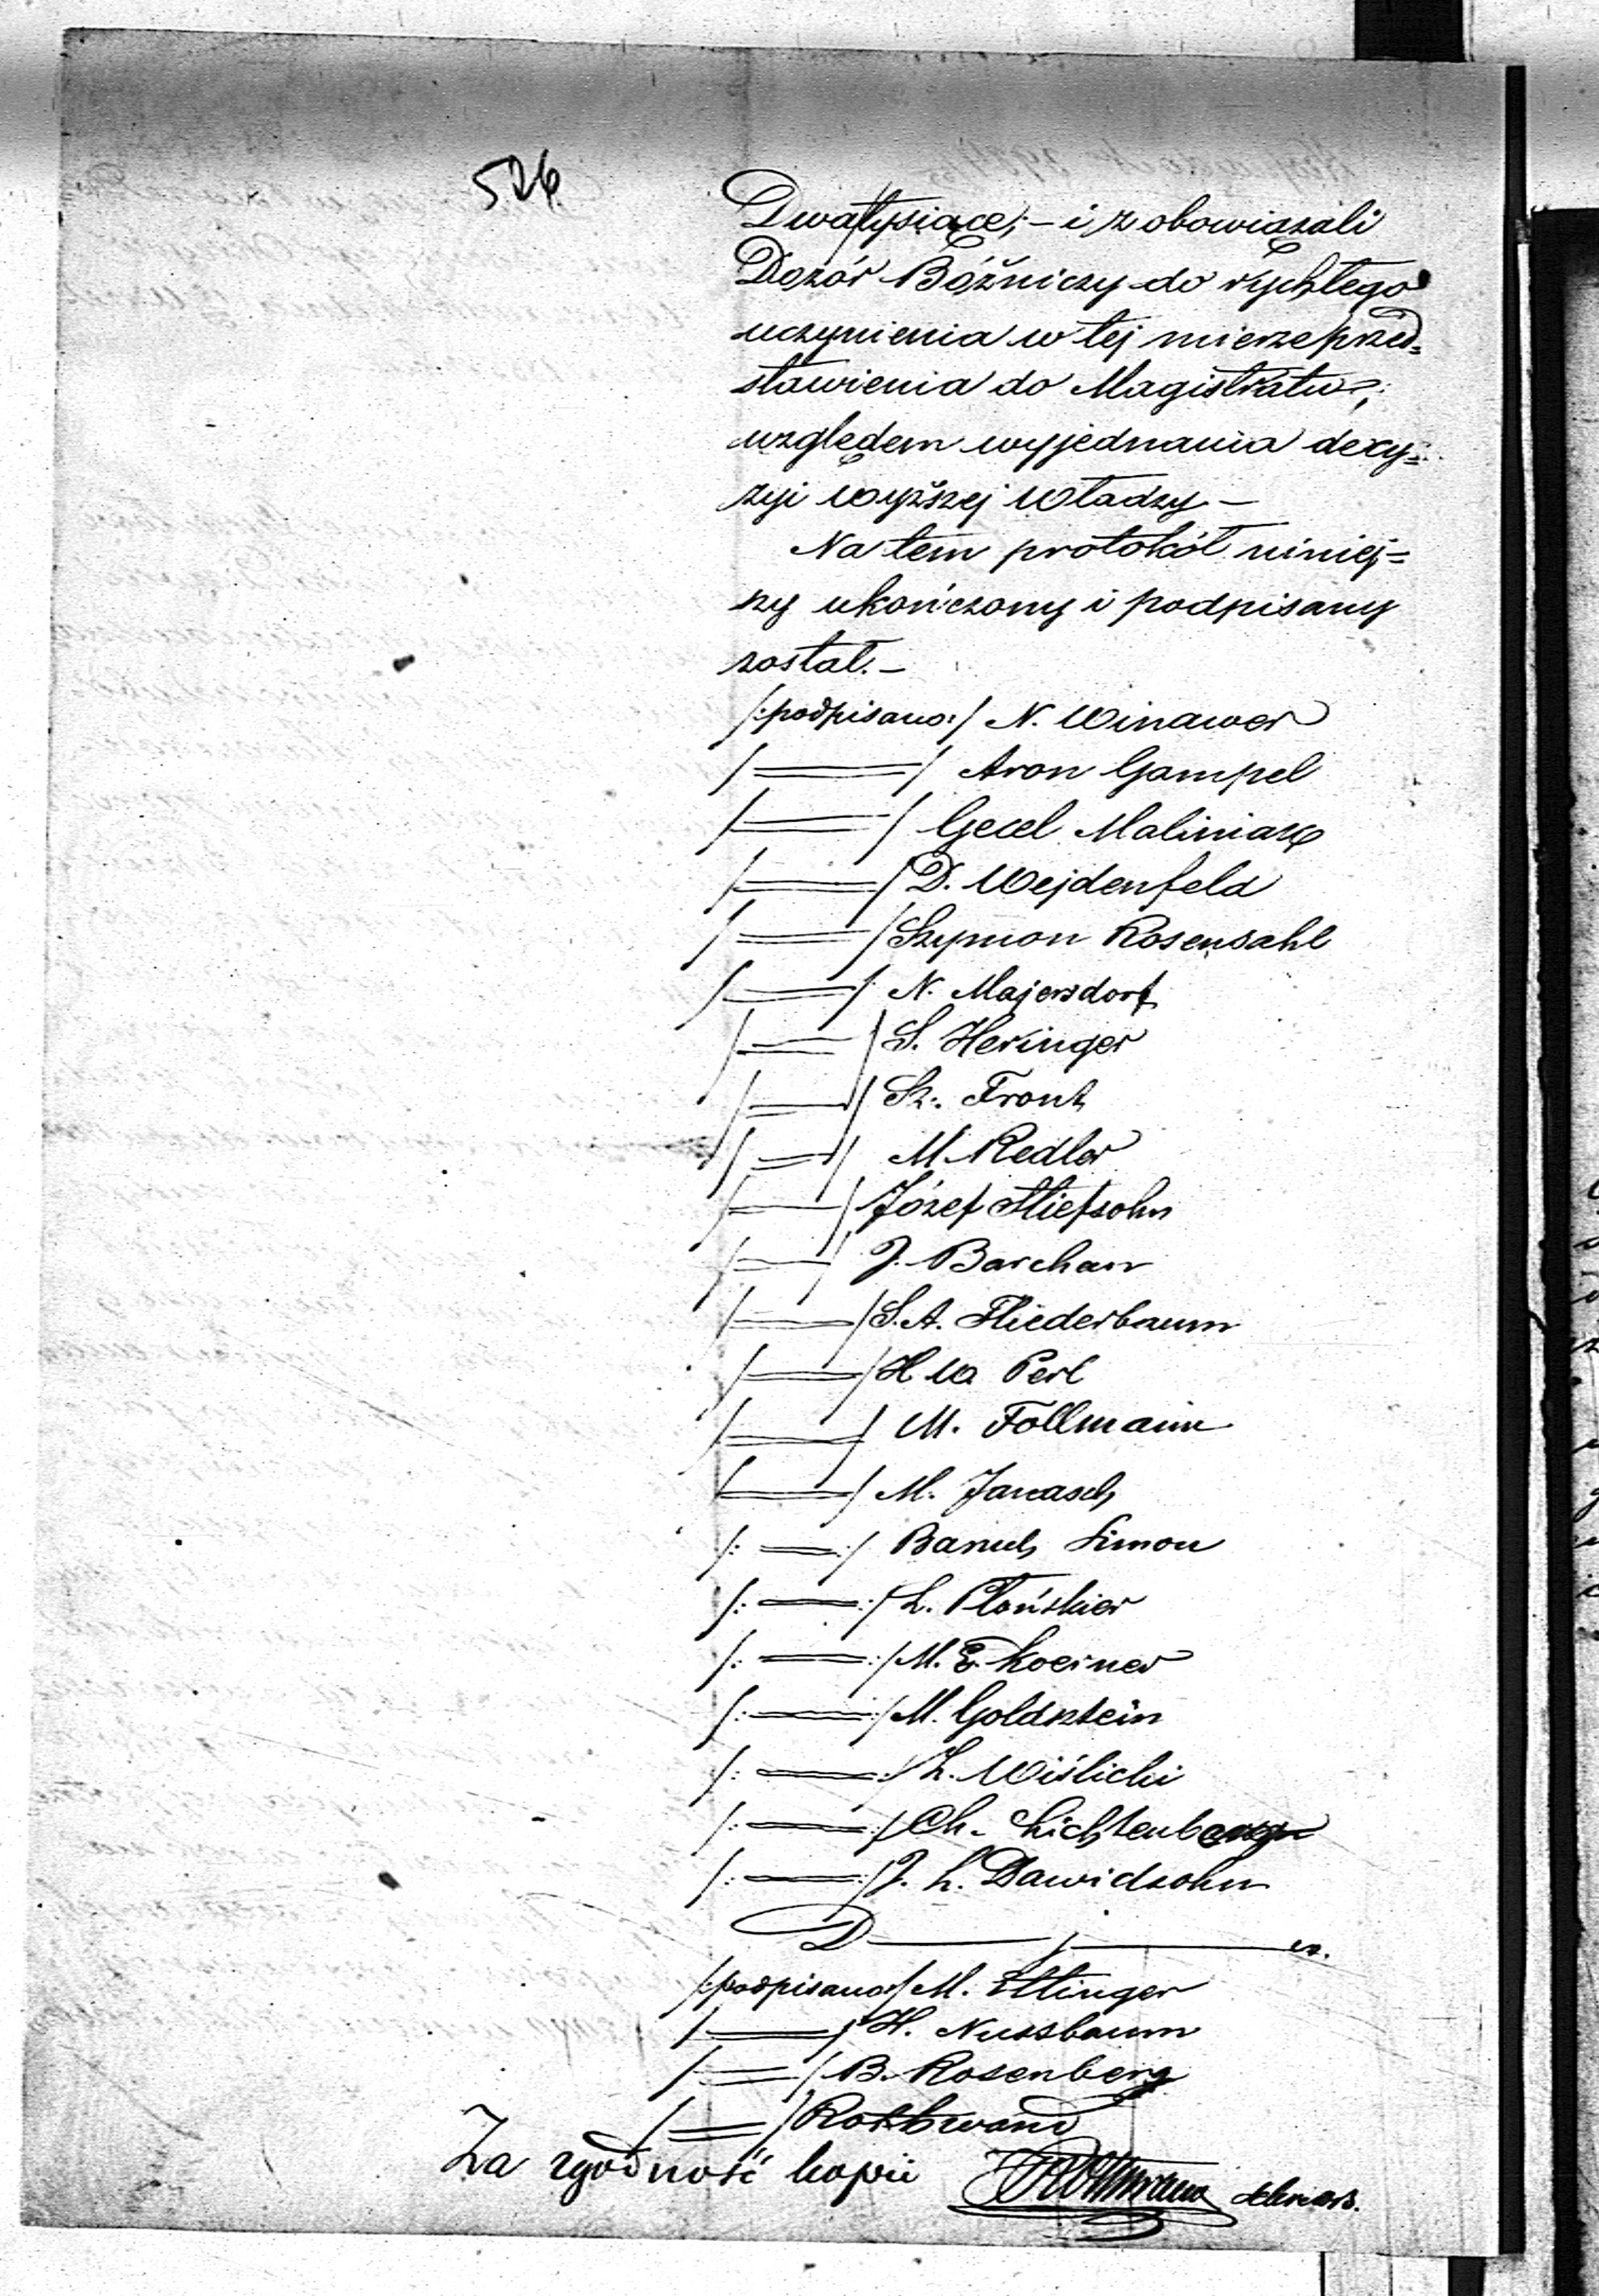 526.
Dwatysiące; – i zobowiązali
Dozór Bóżniczy do rychłego
uczynienia w tej mierze przed=
stawienia do Magistratu;
względem wyjednania decy=
zyi Wyższej Władzy –
Na tem protokół niniej=
szy ukończony i podpisany
został. –
/:podpisano:/ N. Winawer
/ = / Aron Gampel
/ = / Gecel Maliniak
/ = / D. Wejdenfeld
/ = / Szymon Rosensahl
/ = / N. Majersdorf
/ = / S. Heringer
/ = / Sz. Front
/ = / M. Redler
/ = / Józef Stiefsohn
/ = / J. Barchan
/ = / S. A. Fliederbaum
/ = / H W Perl
/ = / M. Follmann
/ = / M. Janasch
/: = :/ Baruch Simon
/: = :/ L. Płońskier
/: = :/ M. E. Koerner
/: = :/ M. Goldsztein
/: = :/ L. Wiślicki
/: = :/ Ch. Lichtenberg
/: = :/ J. L. Dawidsohn
D — j — cz.
/:podpisano:/ M. Ettinger
/ = / H. Nussbaum
/ = / B. Rosenberg
/ = / Rothwand
Za zgodność kopii